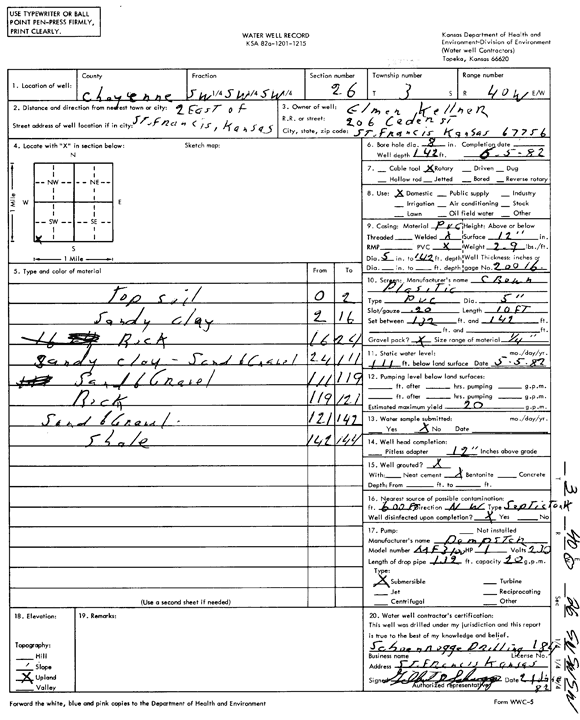 USE TYPEWRITER OR BALL
POINT PEN-PRESS FIRMLY,
PRINT CLEARLY.
WATER WELL RECORD
KSA 82a-1201-1215
Kansas Department of Health and
Environment-Division of Environment
(Water well Contractors)
Topeka, Kansas 66620
1. Location of well: County Cheyenne Fraction SW 1/4 SW 1/4 SW 1/4 Section number 26 Township number T 3 S Range number R 40W E/W
2. Distance and direction from nearest town or city: 2 East of
Street address of well location if in city: ST. Francis, Kansas
3. Owner of well: Elmer Kellner
R.R. or street: 206
City, state, zip code: ST. Francis Kansas 67756
4. Locate with "X" in section below: Sketch map:
N
NW NE
W E
SW SE
X
S
1 Mile
1 Mile
6. Bore hole dia. 8 in. Completion date
Well depth 142 ft. 5-5-82
7. Cable tool X Rotary Driven Dug
Hollow rod Jetted Bored Reverse rotary
8. Use: X Domestic Public supply Industry
Irrigation Air conditioning Stock
Lawn Oil field water Other
9. Casing: Material PVC Height: Above or below
Threaded Welded X Surface 12" in.
RMP PVC X Weight 2.9 lbs./ft.
Dia. 5 in. to 142 ft. depth Wall Thickness: inches or
Dia. in. to ft. depth gage No. .200 16
10. Screen: Manufacturer's name
Plastic
Type PVC Dia. 5"
Slot/gauze .20 Length 10 FT
Set between 132 ft. and 142 ft.
ft. and ft.
Gravel pack? X Size range of material 1/4"
5. Type and color of material From To
Top Sil 0 2
Sandy clay 2 16
Rick 16 24
Sandy clay - Sand & Gravel 24 111
Sand & Gravel 111 119
Rick 119 121
Sand & Gravel 121 142
Shale 142 144
(Use a second sheet if needed)
11. Static water level: mo./day/yr.
111 ft. below land surface Date 5-5-82
12. Pumping level below land surfaces:
ft. after hrs. pumping g.p.m.
ft. after hrs. pumping g.p.m.
Estimated maximum yield 20 g.p.m.
13. Water sample submitted: mo./day/yr.
Yes X No Date
14. Well head completion:
Pitless adapter 12" Inches above grade
15. Well grouted? X
With: Neat cement X Bentonite Concrete
Depth: From ft. to ft.
16. Nearest source of possible contamination:
ft. 600 Ft Direction NW Type Septic Tank
Well disinfected upon completion? X Yes No
17. Pump: Not installed
Manufacturer's name Dempster
Model number HP 1 Volts 230
Length of drop pipe 132 ft. capacity 20 g.p.m.
Type:
X Submersible Turbine
Jet Reciprocating
Centrifugal Other
18. Elevation:
19. Remarks:
Topography:
Hill
Slope
X Upland
Valley
20. Water well contractor's certification:
This well was drilled under my jurisdiction and this report
is true to the best of my knowledge and belief.
Schoenrogge Drilling 184
Business name License No.
Address ST. Francis Kansas
Signed Date
Authorized representative 82
Forward the white, blue and pink copies to the Department of Health and Environment
Form WWC-5